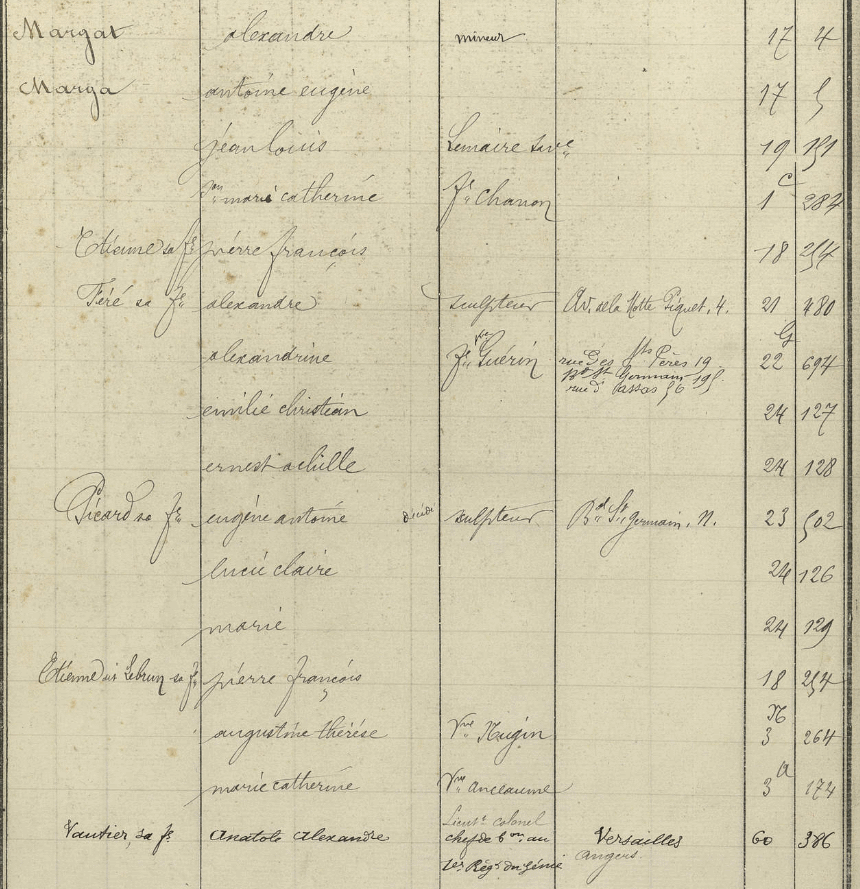 Margat alexandre mineur 17 4
Marga antoine eugène 17 5
jean louis Lemaire 19 151
marie catherine fe Chanon 1 C 284
Etienne sa fe pierre françois 18 254
Féré sa fe alexandre sculpteur Av. de la Motte Piquet, 4. 21 480
alexandrine fe Guérin rue des Sts Pères 19 22 G 694
Bd St Germain 195
rue d'assas 56
emilie christian 24 127
ernest achille 24 128
Picard sa fe eugène antoine décédé sculpteur Bd St germain, 23 502
lucie claire 24 126
marie 24 129
Etienne Lebrun sa fe pierre françois 18 254
augustine thérése Vve Nugin 3 N 264
marie catherine Vve anceaume 3 a 174
Lieutt colonel
Vautier, sa fe anatole alexandre chef de bon au Versailles 60 386
1er Régt du Génie angers